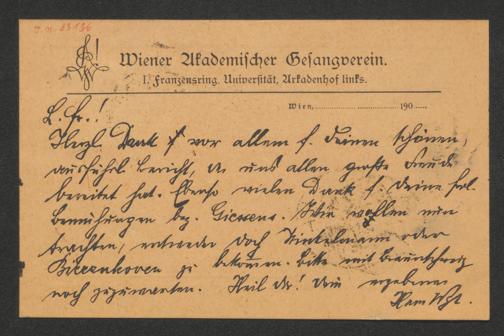 J. N. 83136
Wiener Akademischer Gesangverein.
I. Franzensring. Universität, Arkadenhof links.
Wien, 190
L. Fr.!
Herzl. Dank f vor allem f. Deinen schönen,
ausführl. Bericht, der uns allen große Freude
bereitet hat. Ebenso vielen Dank f. Deine frdl.
Bemühungen bez. Giessens. Wir wollen nun
trachten, entweder doch Winkelmann oder
Birrenkoven zu bekommen. Bitte mit Braunschweig
noch zuzuwarten. Heil Dir! Dein ergebener